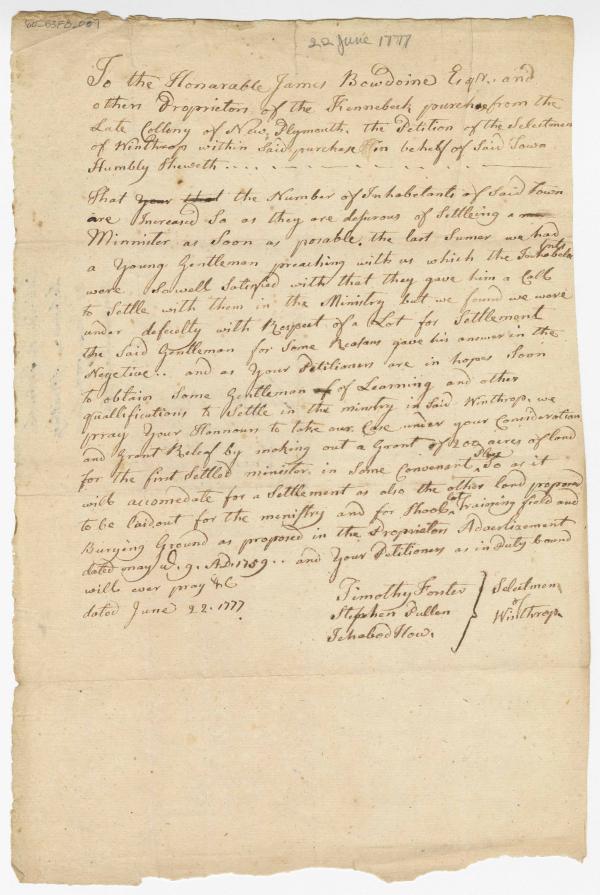 22 June 1777
To the Honarable James Bowdoine Esqr. and
others Proprietors of the Kennebeck purchas from the
Late Collony of New Plymouth. the Petition of the Selectmen
of Winthrop within Said purchase in behelf of Said Town
Humbly Sheweth
That your that the Number of Inhabetants of Said Town
are Increased So as they are desirous of Settleing a
Minnister as Soon as posable. the last Sumer we had
a Young Gentleman preaching with us which the Inhabetants
ware So well Satisfied with that they gave him a Call
to Settle with them in the Ministry but we found we ware
under defecelty with Respect of a Lot for Settlement
the Said Gentleman for Some Reasons gave his answer in the
Negetive.. and as Your Petitioners are in hopes Soon
to obtain Some Gentleman of of Learning and other
quallifications to Settle in the minstry in Said Winthrop. we
pray Your Honnours to take our Case under your Consideration
and Grant Releaf by making out a Grant of 200 acres of land
for the first Settled minister in Some Convenant Place So as it
will accomedate for a Settlement as also the other land proposed
to be laidout for the menistry and for Shool Lot Training field and
Burying Ground as proposed in the Proprietors Advertizement
dated may ye. 9. AD. 1769.. and Your Petitioners as in Duty bound
will ever pray &C
dated June 22. 1777
Timothy Foster
Stephen Pullen
Ichabod How.
Selectmen
of
Winthrop